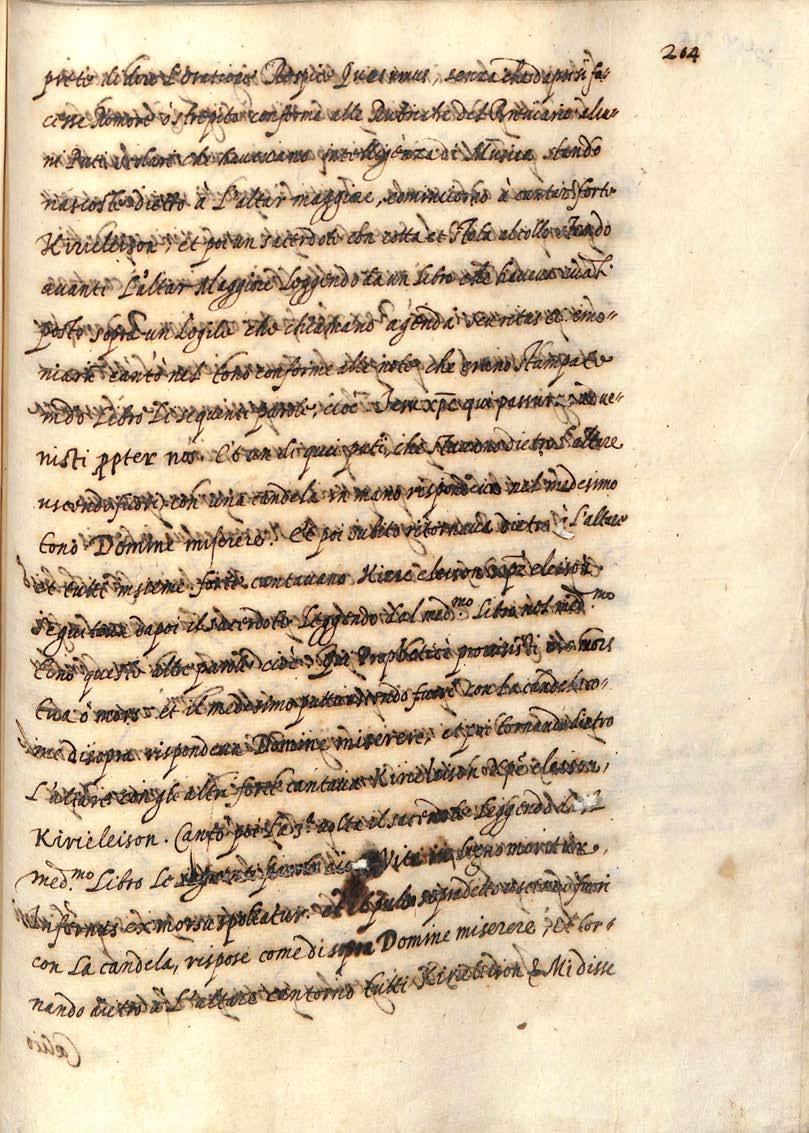 204
prete di dire L'oratione Respice Quesumus, senza che dapoi si fa-
cesse Romore ò strepito conforme alle Rubriche del Breviario alcu-
ni Puti scolari che havevano intelligenza di Musica stando
nascosti dietro à L'altar maggiore, cominciorno à cantar forte
Kirieleison, et poi un sacerdote con cotta et stola al collo stando
avanti L'altar Maggiore Leggendo da un libro che haveva
posto sopra un Legile che chiamano agenda seu ritas ceremo-
niarũ cantò nel tono conforme alle note che erano stampate
in do Libro Le seguenti parole, cioè Jesu xpe qui passurus adve-
nisti ꝓpter nos. Et un di quei puti, che stavano dietro L'altare
uscendo fuori con una candela in mano rispondeva nel medesimo
tono Domine miserere. Et poi subito ritornava dietro à L'altare
et tutti insieme forte cantavano Kirie eleison xpe eleison
seguitava dapoi il sacerdote Leggendo dal med.mo Libro nel med.mo
tono queste altre parole cioè Qui Prophetice promisisti ero mors
tua ò mors et il medesimo putto uscendo fuori con La candela co-
me di sopra rispondeva Domine miserere, et poi tornando dietro
L'altare con gli altri forte cantava Kirieleison xpe eleison,
Kirieleison. Cantò poi La 3ª volta il sacerdote Leggendo dal
med.mo Libro Le seguenti parole cioè Vita in ligno moritur,
Infernus ex morsu spoliatur. et il puto sopradetto uscendo fuori
con La candela, rispose come di sopra Domine miserere, Et tor-
nando dietro à L'altare cantorno tutti Kirieleison & Mi disse